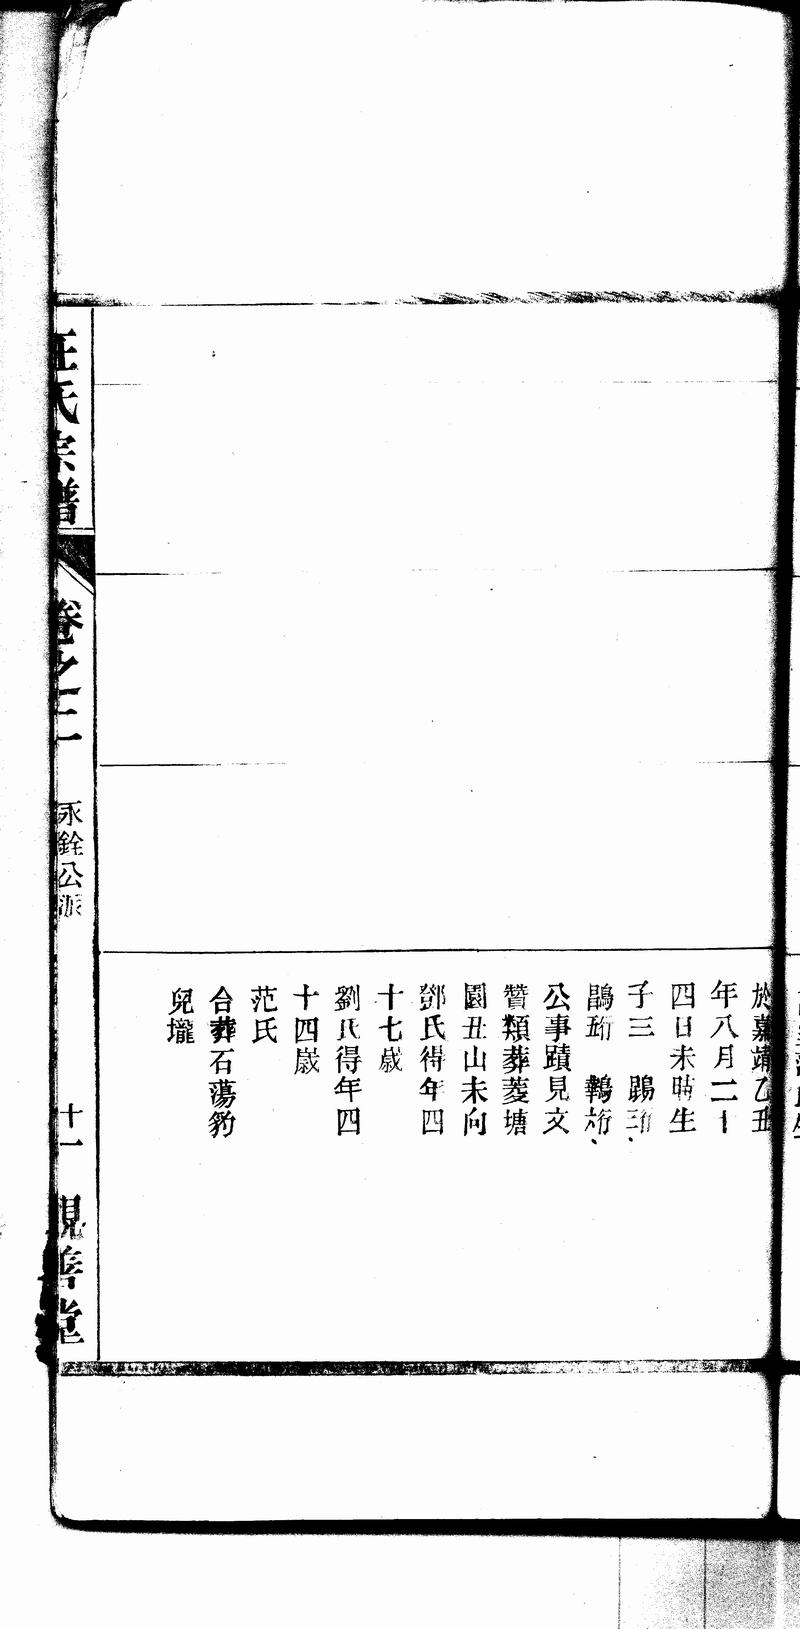 於嘉靖乙丑
年八月二十
四日未時生
子三 鵾珩
鵾珩 鶤珩
公事蹟見文
贊類葬菱塘
園丑山未向
鄧氏得年四
十七歲
劉氏得年四
十四歲
范氏
合葬石蕩豹
兒壠
汪氏宗譜
卷之二
永銓公派
十一
親善堂